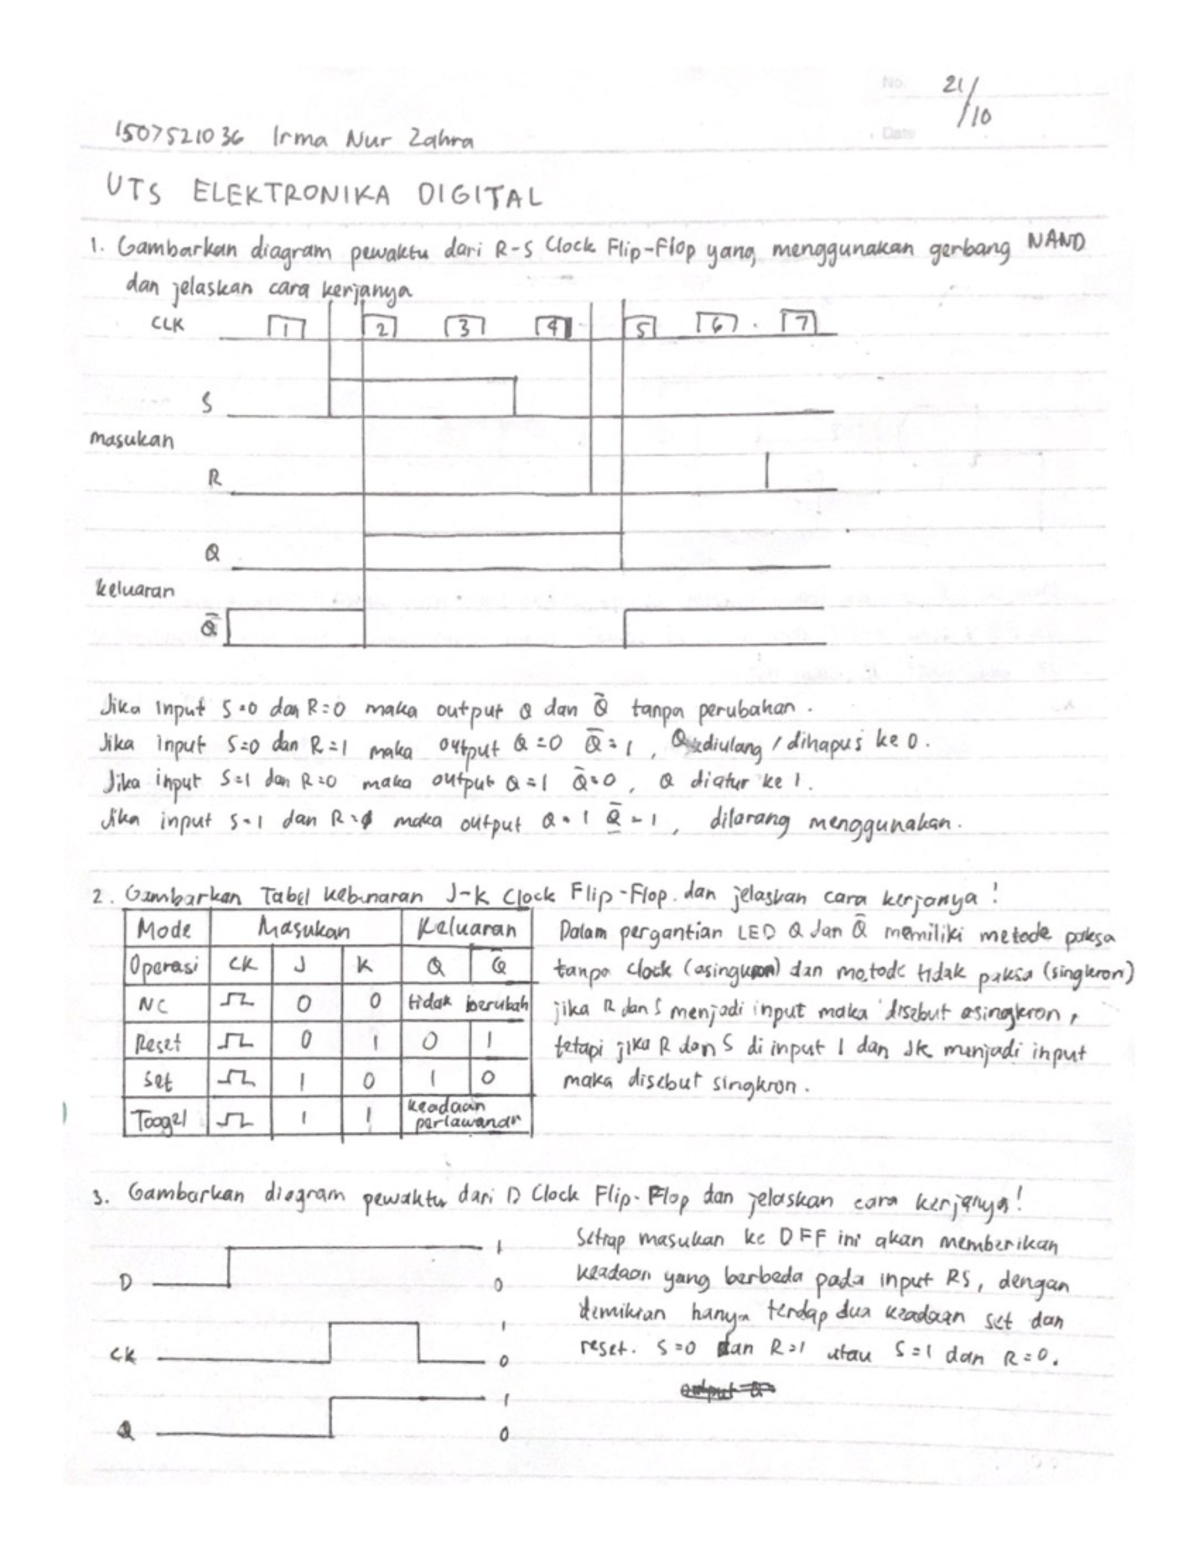 No. 21/10
Date
1507521036 Irma Nur Zahra
UTS ELEKTRONIKA DIGITAL
1. Gambarkan diagram pewaktu dari R-S Clock Flip-Flop yang menggunakan gerbang NAND
dan jelaskan cara kerjanya
CLK 1 2 3 4 5 6 7
S
masukan
R
Q
keluaran
Q̅
Jika input S=0 dan R=0 maka output Q dan Q̅ tanpa perubahan.
Jika input S=0 dan R=1 maka output Q=0 Q̅=1, Q diulang / dihapus ke 0.
Jika input S=1 dan R=0 maka output Q=1 Q̅=0, Q diatur ke 1.
Jika input S=1 dan R= maka output Q=1 Q̅=1, dilarang menggunakan.
2. Gambarkan Tabel kebenaran J-K Clock Flip-Flop. dan jelaskan cara kerjanya!
Mode Masukan Keluaran
Operasi CK J K Q Q̅
NC 0 0 tidak berubah
Reset 0 1 0 1
Set 1 0 1 0
Toogel 1 1 keadaan
perlawanan
Dalam pergantian LED Q dan Q̅ memiliki metode paksa
tanpa clock (asingkron) dan metode tidak paksa (singkron)
jika R dan S menjadi input maka disebut asingkron,
tetapi jika R dan S di input 1 dan JK menjadi input
maka disebut singkron.
3. Gambarkan diagram pewaktu dari D Clock Flip-Flop dan jelaskan cara kerjanya!
1
D 0
1
CK 0
1
Q 0
Setiap masukan ke DFF ini akan memberikan
keadaan yang berbeda pada input RS, dengan
demikian hanya terdap dua keadaan set dan
reset. S=0 dan R=1 atau S=1 dan R=0.